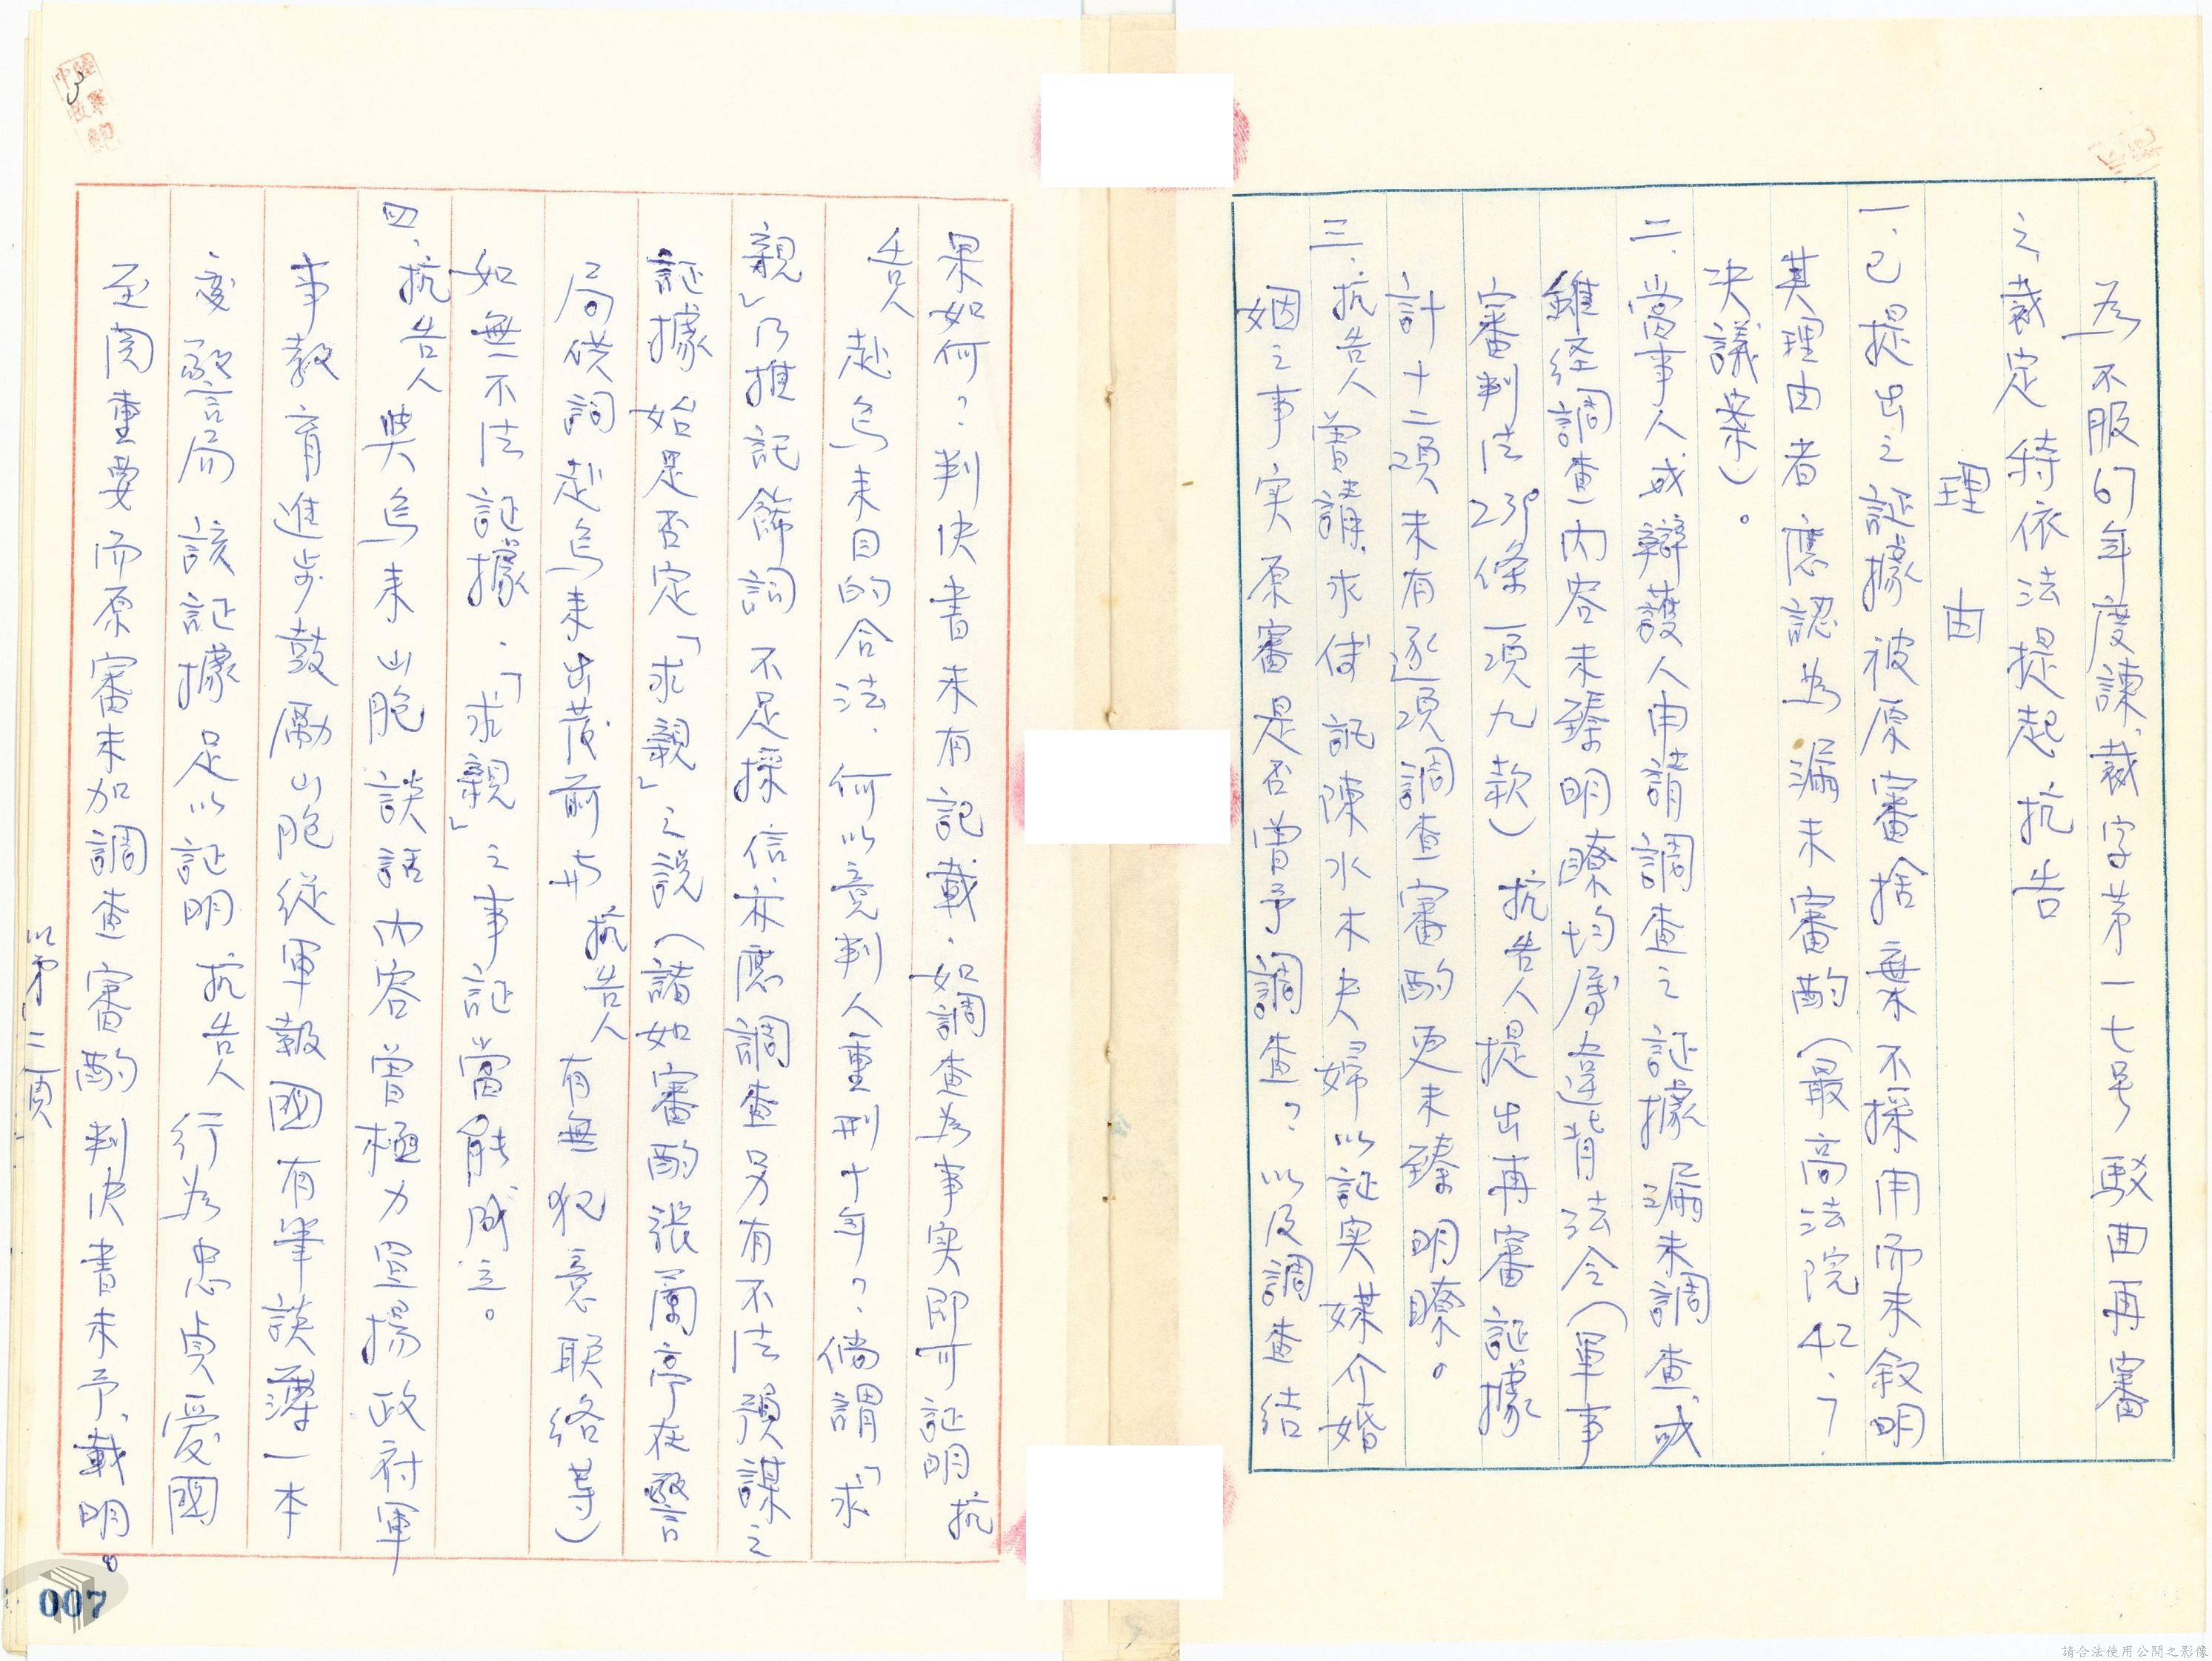 為不服旬年度諫裁字第一七号駁回再審
之裁定特依法提起抗告
理由
一、已提出之証據被原審捨棄不採用而未叙明
其理由者應認為漏未審酌(最高法院42、7.
決議案)。
二、當事人或辯護人申請調查之証據漏未調查或
雖経調查内容未臻明瞭均屬違背法令(軍事
審判法 條一項九款)抗告人提出再審証據
計十二項未有逐項調查審酌更未臻明瞭。
三、抗告人曾請求傳訊陳水木夫婦以証实媒介婚
姻之事实原審是否曾予調查?以及調查結
果如何?判決書未有記載.如調查為事実即可証明抗
告人赴烏来目的合法.何以竟判人重刑十年?.倘謂「求
親」乃推託餙詞不足採信.亦應調查另有不法預謀之
証據始足否定「求親」之說(諸如審酌張 在警
局供詞赴烏来出發前与抗告人有無犯意聯络等)
如無不法証據.「求親」之事証當能成立。
四、抗告人與烏来山胞談話内容曾極力宣揚政府軍
事教育進步鼓勵山胞從軍報國有筆談薄一本
変 警局該証據足以証明抗告人行為忠貞愛國
至関重要而原審未加調查審酌判決書未予載明。
以第三頁
3
007
請合法使用公開之影像